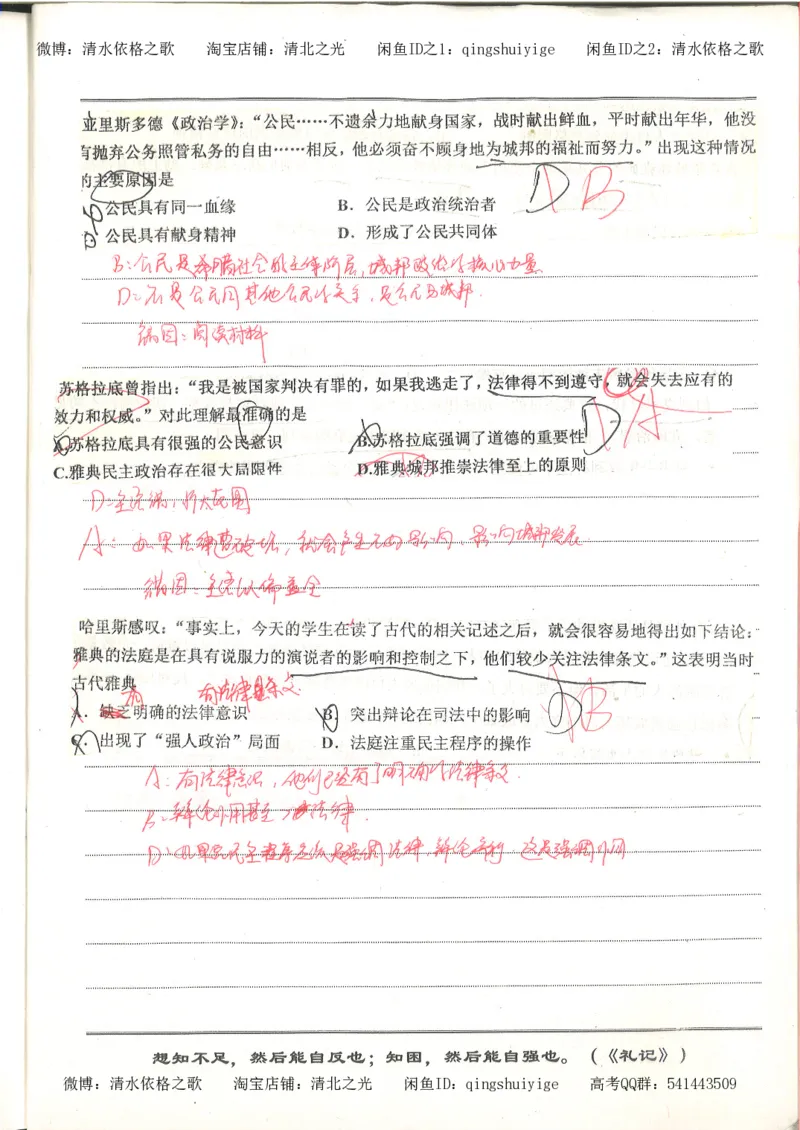 微博：清水依格之歌 淘宝店铺：清北之光 闲鱼ID之1：qingshuiyige 闲鱼ID之2：清水依格之歌
亚里斯多德《政治学》：“公民……不遗余力地献身国家，战时献出鲜血，平时献出年华，他没
有抛弃公务照管私务的自由……相反，他必须奋不顾身地为城邦的福祉而努力。”出现这种情况
的主要原因是
公民具有同一血缘 B．公民是政治统治者
D B
公民具有献身精神 D．形成了公民共同体
B：公民是希腊社会的主体阶层，城邦政治的核心力量
D：不是公民同其他公民的关系，是公民与城邦．
错因：阅读材料
苏格拉底曾指出：“我是被国家判决有罪的，如果我逃走了，法律得不到遵守，就会失去应有的
效力和权威。”对此理解最准确的是
A.苏格拉底具有很强的公民意识 B.苏格拉底强调了道德的重要性
D A
C.雅典民主政治存在很大局限性 D.雅典城邦推崇法律至上的原则
D：主语错，扩大范围
A：如果法律遭破坏，就会产生不好影响，影响城邦发展
错因：主语以偏盖全
哈里斯感叹：“事实上，今天的学生在读了古代的相关记述之后，就会很容易地得出如下结论：
雅典的法庭是在具有说服力的演说者的影响和控制之下，他们较少关注法律条文。”这表明当时
古代雅典
有 有法律条文
A．缺乏明确的法律意识 B．突出辩论在司法中的影响
D B
C．出现了“强人政治”局面 D．法庭注重民主程序的操作
A：有法律意识，他们已经有了明确的法律条文．
B：辩论作用甚至 法律．
D： 民主程序 是强调法律，辩论 这是强调
想知不足，然后能自反也；知困，然后能自强也。（《礼记》）
微博：清水依格之歌 淘宝店铺：清北之光 闲鱼ID：qingshuiyige 高考QQ群：541443509